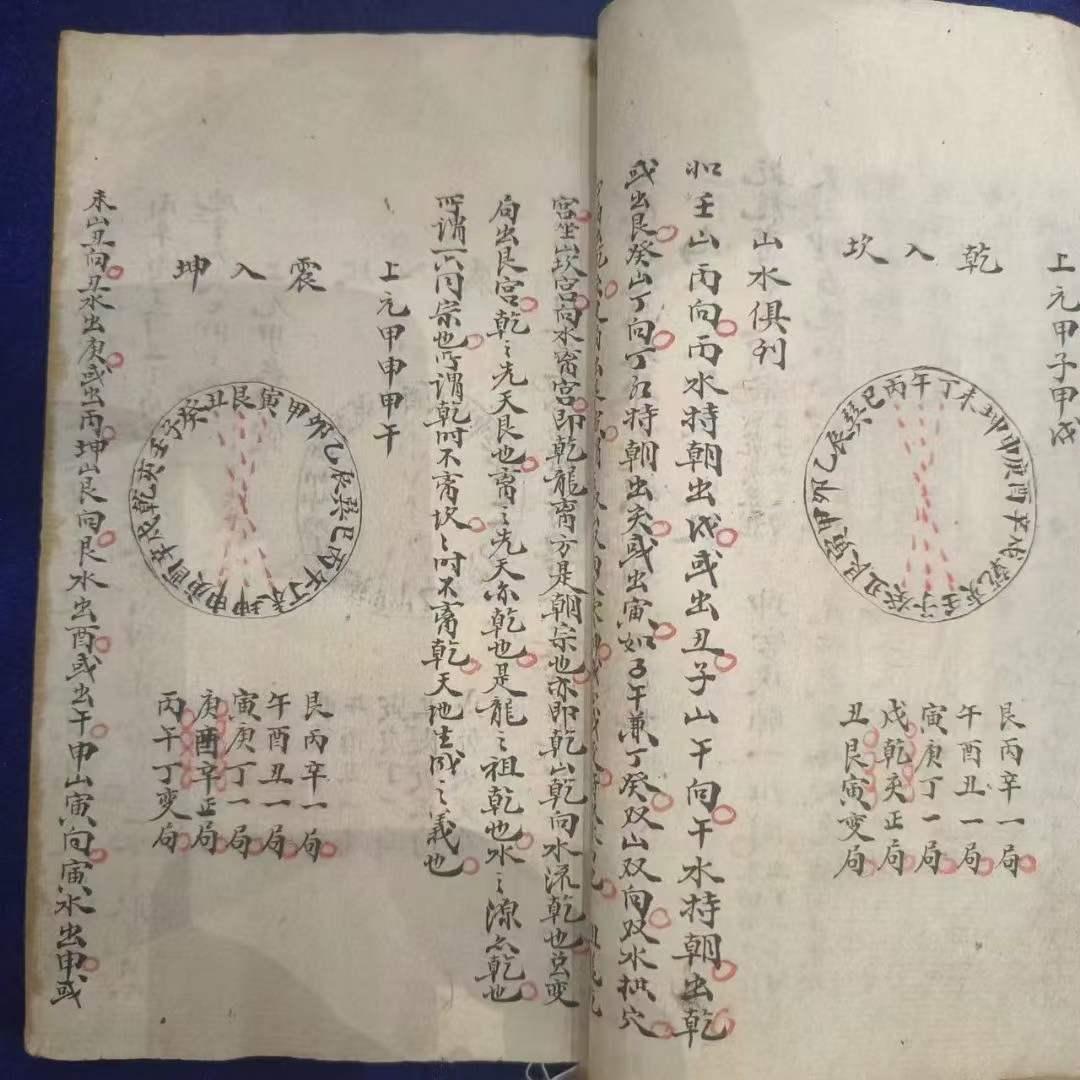 上元甲子甲戌
乾入坎
丙午丁未坤申庚酉辛戌乾亥壬子癸丑艮寅甲卯乙辰巽巳
艮丙辛一局
午酉丑一局
寅庚丁一局
戌乾亥正局
丑艮寅变局
山水俱列
如壬山丙向丙水特朝出戌或出丑子山午向午水特朝出乾
或出艮癸山丁向丁水特朝出亥或出寅如子午兼丁癸双山双向双水拱穴
宫坐山坎宫向水离宫即乾龍离方是朝宗也亦即乾山乾向水流乾也至变
局出艮宫乾之先天艮也离之先天亦乾也是龍之祖乾也水之源亦乾也
所謂一六同宗也所謂乾时不离坎坎时不离乾天地生成之義也
上元甲申甲午
震入坤
丑艮寅甲卯乙辰巽巳丙午丁未坤申庚酉辛戌乾亥壬子癸
艮丙辛一局
午酉丑一局
寅庚丁一局
庚酉辛正局
丙午丁变局
未山丑向丑水出庚或出丙坤山艮向艮水出酉或出午申山寅向寅水出申或